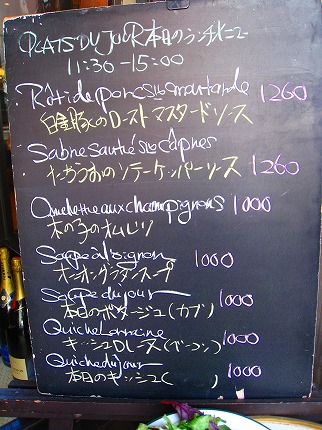 PLATS DU JOUR 本日のランチメニュー
11:30-15:00
Rôti de porc sce moutarde 1260
白金豚のロースト マスタードソース
Sabre sauté sce câpres
たちうおのソテーケッパーソース 1260
Omelette aux champignons 1000
木の子のオムレツ
Soupe à l'oignon 1000
オニオングラタンスープ
Soupe du jour 1000
本日のポタージュ(カブ)
Quiche Lorraine 1000
キッシュロレーヌ(ベーコン)
Quiche du jour 1000
本日のキッシュ( )